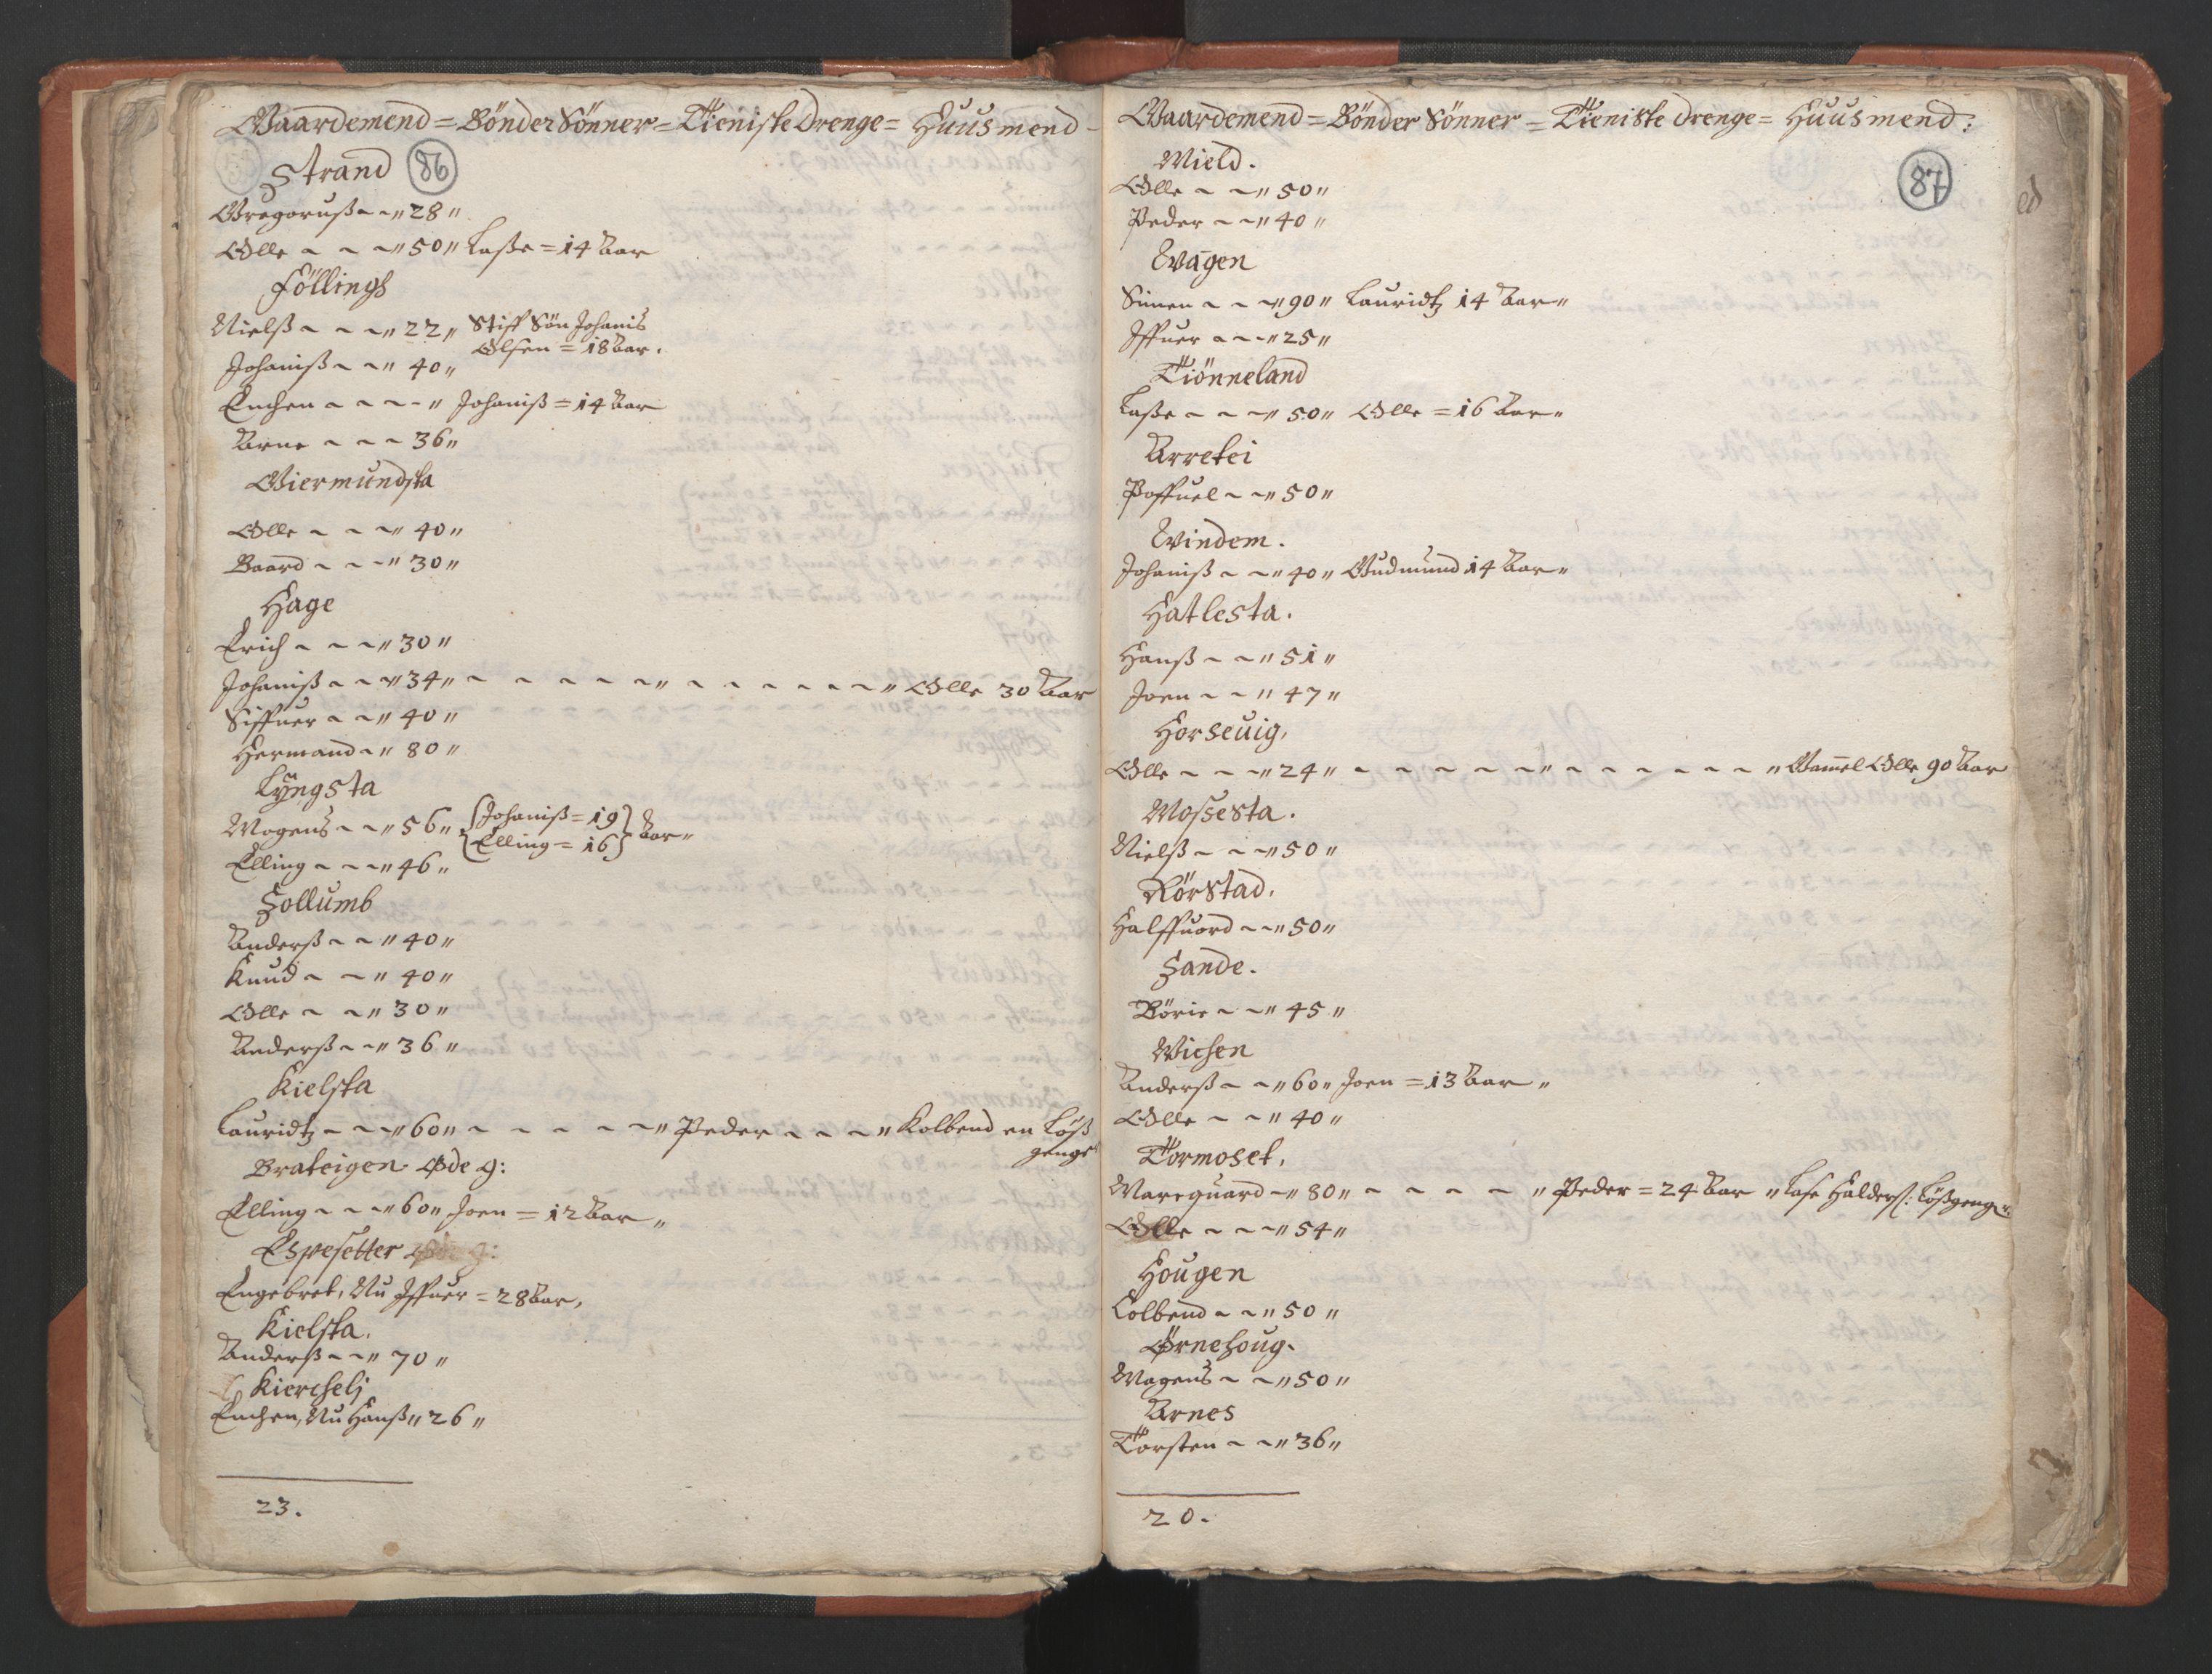 Gaardemend = Bönder Sönner = Tieniste Drenge = Huusmend -
Strand 86
Gregoruß ~ ~ " 28 "
Olle ~ ~ ~ " 50 " Laße = 14 Aar
Föllings
Nielß ~ ~ ~ " 22 " Stiff Sön Johanis
Olsen = 18 Aar.
Johaniß ~ ~ " 40 "
Enchen ~ ~ ~ - " Johaniß = 14 Aar
Arne ~ ~ ~ 36 "
Giermundsta
Olle ~ ~ ~ " 40 "
Baard ~ ~ ~ " 30 "
Hage
Erich ~ ~ ~ " 30 "
Johaniß ~ ~ ~ " 34 " ~ ~ ~ ~ ~ ~ " ~ ~ ~ ~ ~ ~ ~ " Olle 30 Aar
Siffuer ~ ~ " 40 "
Hermand ~ " 80 "
Lyngsta
Mogens ~ ~ " 56 " { Johaniß = 19 } Aar "
{ Elling = 16 }
Elling ~ ~ ~ " 46 "
Sollumb
Anderß ~ ~ " 40 "
Knud ~ ~ " 40 "
Olle ~ ~ " 30 "
Anderß ~ ~ " 36 "
Kielsta
Lauridtz ~ ~ ~ " 60 " ~ ~ ~ ~ ~ ~ " Peder ~ ~ ~ " Kolbend en Löß
genger
Brateigen Øde g:
Elling ~ ~ ~ " 60 " Joen = 12 Aar "
Espesetter Øde g:
Engebret, Nu Iffuer = 28 Aar,
Kielsta.
Anderß ~ ~ " 70 "
Kierchelj
Enchen, Nu Hanß " 26 "
23.
Gaardemend = Bönder Sönner = Tieniste Drenge = Huusmend :
Mield.
87
Olle ~ ~ " 50 "
Peder ~ ~ " 40 "
Evagen
Simen ~ ~ ~ " 90 " Lauridtz 14 Aar "
Iffuer ~ ~ ~ " 25 "
Tiönneland
Laße ~ ~ ~ " 50 " Olle = 16 Aar "
Arretei
Poffuel ~ ~ " 50 "
Evindem.
Johaniß ~ ~ " 40 " Gudmund 14 Aar "
Hatlesta.
Hanß ~ ~ " 51 "
Joen ~ ~ " 47 "
Horseuig,
Olle ~ ~ ~ " 24 " ~ ~ ~ ~ ~ ~ " ~ ~ ~ ~ ~ ~ " Gamel Olle 90 Aar
Mossesta.
Nielß ~ ~ ~ " 50 "
Rörstad.
Halffuord ~ ~ " 50 "
Sande.
Börie ~ ~ " 45 "
Wichen
Anderß ~ ~ " 60 " Joen = 13 Aar "
Olle ~ ~ " 40 "
Tormoset.
Marequard ~ " 80 " ~ ~ ~ ~ ~ " Peder = 24 Aar " Lase Halders: Lößgenger
Olle ~ ~ ~ " 54 "
Hougen
Colbend ~ ~ " 50 "
Ørnehoug.
Mogens ~ ~ " 50 "
Arnes
Torsten ~ ~ " 36 "
20.